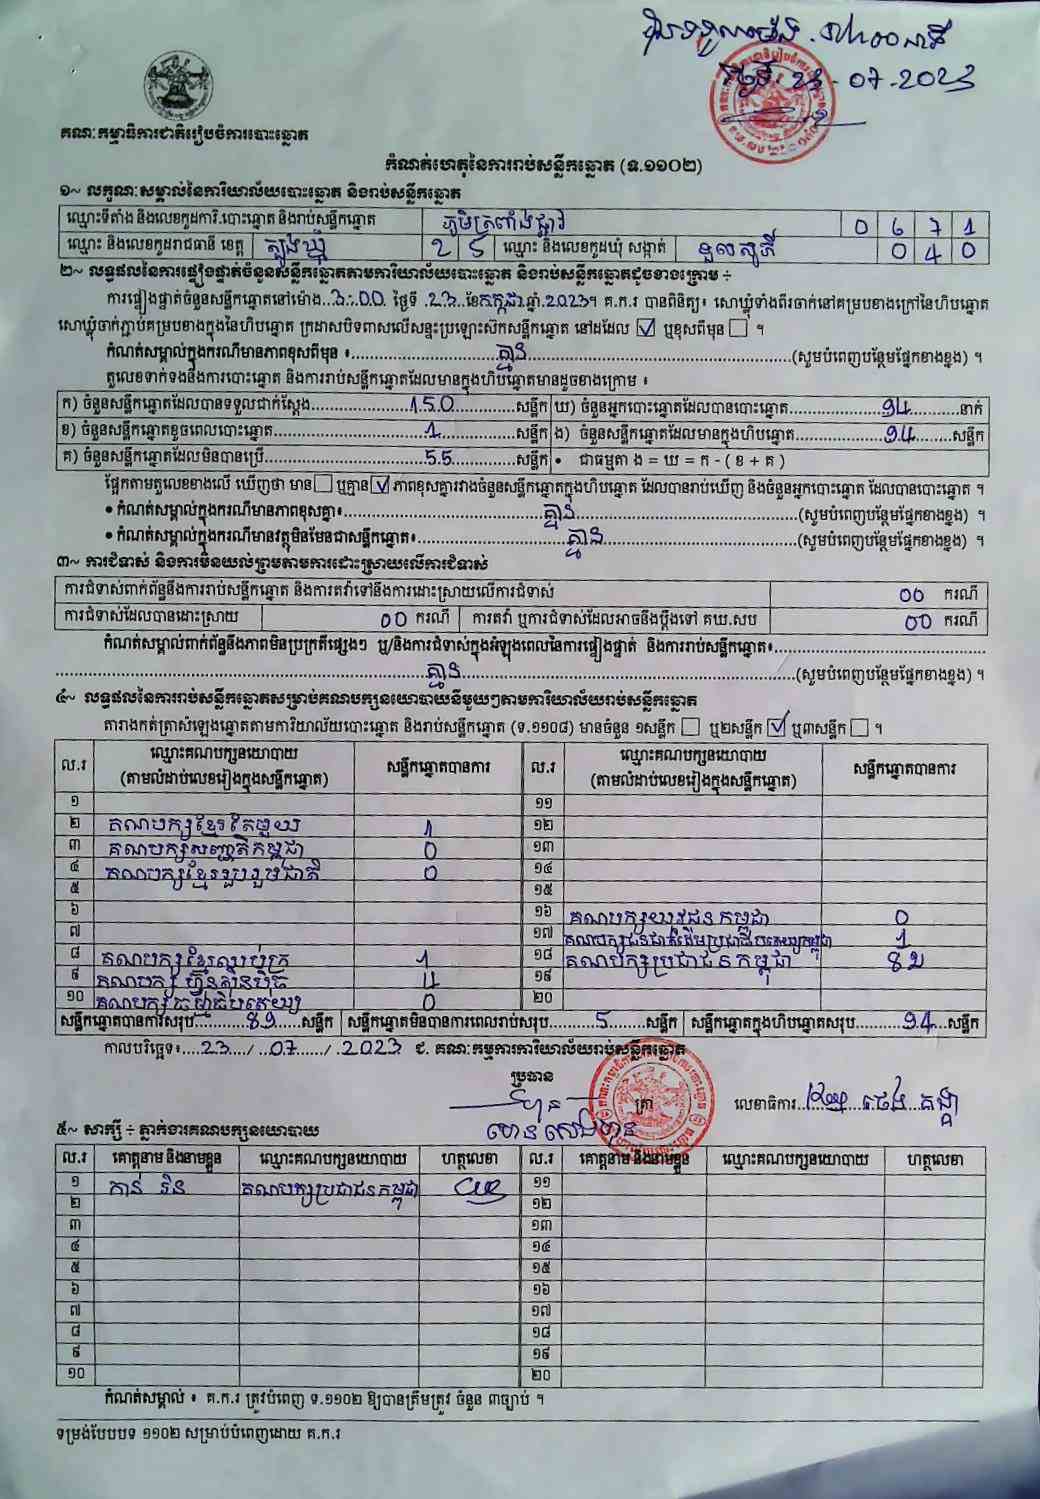 ថ្ងៃទី. 23 - 07 - 2023
គណៈកម្មាធិការជាតិរៀបចំការបោះឆ្នោត
កំណត់ហេតុនៃការរាប់សន្លឹកឆ្នោត (ទ.១១០២)
១~ លក្ខណៈសម្គាល់នៃការិយាល័យបោះឆ្នោត និងរាប់សន្លឹកឆ្នោត
ឈ្មោះទីតាំង និងលេខកូដការិ.បោះឆ្នោត និងរាប់សន្លឹកឆ្នោត ភូមិត្រពាំងផ្លូវ 0 6 7 1
ឈ្មោះ និងលេខកូដរាជធានី ខេត្ត ត្បូងឃ្មុំ 2 5 ឈ្មោះ និងលេខកូដឃុំ សង្កាត់ ទួលសូភី 0 4 0
២~ លទ្ធផលនៃការផ្ទៀងផ្ទាត់ចំនួនសន្លឹកឆ្នោតតាមការិយាល័យបោះឆ្នោត និងរាប់សន្លឹកឆ្នោតដូចខាងក្រោម ÷
ការផ្ទៀងផ្ទាត់ចំនួនសន្លឹកឆ្នោតនៅម៉ោង..3:00 ថ្ងៃទី .23..ខែកក្កដា.ឆ្នាំ.2023។ គ.ក.រ បានពិនិត្យ៖ សោឃ្លុំទាំងពីរចាក់នៅគម្របខាងក្រៅនៃហិបឆ្នោត
សោឃ្លុំចាក់ភ្ជាប់គម្របខាងក្នុងនៃហិបឆ្នោត ក្រដាសបិទពាសលើសន្ទះប្រឡោះស៊កសន្លឹកឆ្នោត នៅដដែល ☑ ឬខុសពីមុន ☐ ។
កំណត់សម្គាល់ក្នុងករណីមានភាពខុសពីមុន ៖.....គ្មាន.....(សូមបំពេញបន្ថែមផ្នែកខាងខ្នង) ។
តួលេខទាក់ទងនឹងការបោះឆ្នោត និងការរាប់សន្លឹកឆ្នោតដែលមានក្នុងហិបឆ្នោតមានដូចខាងក្រោម ៖
ក) ចំនួនសន្លឹកឆ្នោតដែលបានទទួលជាក់ស្តែង.....150.....សន្លឹក ឃ) ចំនួនអ្នកបោះឆ្នោតដែលបានបោះឆ្នោត.....94.....នាក់
ខ) ចំនួនសន្លឹកឆ្នោតខូចពេលបោះឆ្នោត.....1.....សន្លឹក ង) ចំនួនសន្លឹកឆ្នោតដែលមានក្នុងហិបឆ្នោត.....94.....សន្លឹក
គ) ចំនួនសន្លឹកឆ្នោតដែលមិនបានប្រើ.....55.....សន្លឹក • ជាធម្មតា ង = ឃ = ក - ( ខ + គ )
ផ្អែកតាមតួលេខខាងលើ ឃើញថា មាន ☐ ឬគ្មាន ☑ ភាពខុសគ្នារវាងចំនួនសន្លឹកឆ្នោតក្នុងហិបឆ្នោត ដែលបានរាប់ឃើញ និងចំនួនអ្នកបោះឆ្នោត ដែលបានបោះឆ្នោត ។
• កំណត់សម្គាល់ក្នុងករណីមានភាពខុសគ្នា៖.....គ្មាន.....(សូមបំពេញបន្ថែមផ្នែកខាងខ្នង) ។
• កំណត់សម្គាល់ក្នុងករណីមានវត្ថុមិនមែនជាសន្លឹកឆ្នោត៖.....គ្មាន.....(សូមបំពេញបន្ថែមផ្នែកខាងខ្នង) ។
៣~ ការជំទាស់ និងការមិនយល់ព្រមតាមការដោះស្រាយលើការជំទាស់
ការជំទាស់ពាក់ព័ន្ធនឹងការរាប់សន្លឹកឆ្នោត និងការតវ៉ាទៅនឹងការដោះស្រាយលើការជំទាស់ 00 ករណី
ការជំទាស់ដែលបានដោះស្រាយ 00 ករណី ការតវ៉ា ឬការជំទាស់ដែលអាចនឹងប្តឹងទៅ គឃ.សប 00 ករណី
កំណត់សម្គាល់ពាក់ព័ន្ធនឹងភាពមិនប្រក្រតីផ្សេងៗ ឬ/និងការជំទាស់ក្នុងអំឡុងពេលនៃការផ្ទៀងផ្ទាត់ និងការរាប់សន្លឹកឆ្នោត៖.....
.....គ្មាន.....(សូមបំពេញបន្ថែមផ្នែកខាងខ្នង) ។
៤~ លទ្ធផលនៃការរាប់សន្លឹកឆ្នោតសម្រាប់គណបក្សនយោបាយនីមួយៗតាមការិយាល័យរាប់សន្លឹកឆ្នោត
តារាងកត់ត្រាសំឡេងឆ្នោតតាមការិយាល័យបោះឆ្នោត និងរាប់សន្លឹកឆ្នោត (ទ.១១០៨) មានចំនួន ១សន្លឹក ☐ ឬ២សន្លឹក ☑ ឬ៣សន្លឹក ☐ ។
ល.រ ឈ្មោះគណបក្សនយោបាយ (តាមលំដាប់លេខរៀងក្នុងសន្លឹកឆ្នោត) សន្លឹកឆ្នោតបានការ ល.រ ឈ្មោះគណបក្សនយោបាយ (តាមលំដាប់លេខរៀងក្នុងសន្លឹកឆ្នោត) សន្លឹកឆ្នោតបានការ
១ ១១
២ គណបក្សខ្មែរតែមួយ 1 ១២
៣ គណបក្សសញ្ជាតិកម្ពុជា 0 ១៣
៤ គណបក្សខ្មែររួបរួមជាតិ 0 ១៤
៥ ១៥
៦ ១៦ គណបក្សយុវជនកម្ពុជា 0
៧ ១៧ គណបក្សជនជាតិដើមប្រជាធិបតេយ្យកម្ពុជា 1
៨ គណបក្សខ្មែរឈប់ក្រ 1 ១៨ គណបក្សប្រជាជនកម្ពុជា 82
៩ គណបក្សហ្វ៊ុនស៊ិនប៉ិច 4 ១៩
១០ គណបក្សធម្មាធិបតេយ្យ 0 ២០
សន្លឹកឆ្នោតបានការសរុប.....89.....សន្លឹក សន្លឹកឆ្នោតមិនបានការពេលរាប់សរុប.....5.....សន្លឹក សន្លឹកឆ្នោតក្នុងហិបឆ្នោតសរុប.....94....សន្លឹក
កាលបរិច្ឆេទ៖....23..../..07....../..2023 ជ. គណៈកម្មការការិយាល័យរាប់សន្លឹកឆ្នោត
ប្រធាន
ត្រា លេខាធិការ.....ថេង គង្គា
ហេន សេងហុន
៥~ សាក្សី ÷ ភ្នាក់ងារគណបក្សនយោបាយ
ល.រ គោត្តនាម និងនាមខ្លួន ឈ្មោះគណបក្សនយោបាយ ហត្ថលេខា ល.រ គោត្តនាម និងនាមខ្លួន ឈ្មោះគណបក្សនយោបាយ ហត្ថលេខា
១ កាន់ ទិន គណបក្សប្រជាជនកម្ពុជា ១១
២ ១២
៣ ១៣
៤ ១៤
៥ ១៥
៦ ១៦
៧ ១៧
៨ ១៨
៩ ១៩
១០ ២០
កំណត់សម្គាល់ ៖ គ.ក.រ ត្រូវបំពេញ ទ.១១០២ ឱ្យបានត្រឹមត្រូវ ចំនួន ៣ច្បាប់ ។
ទម្រង់បែបបទ ១១០២ សម្រាប់បំពេញដោយ គ.ក.រ